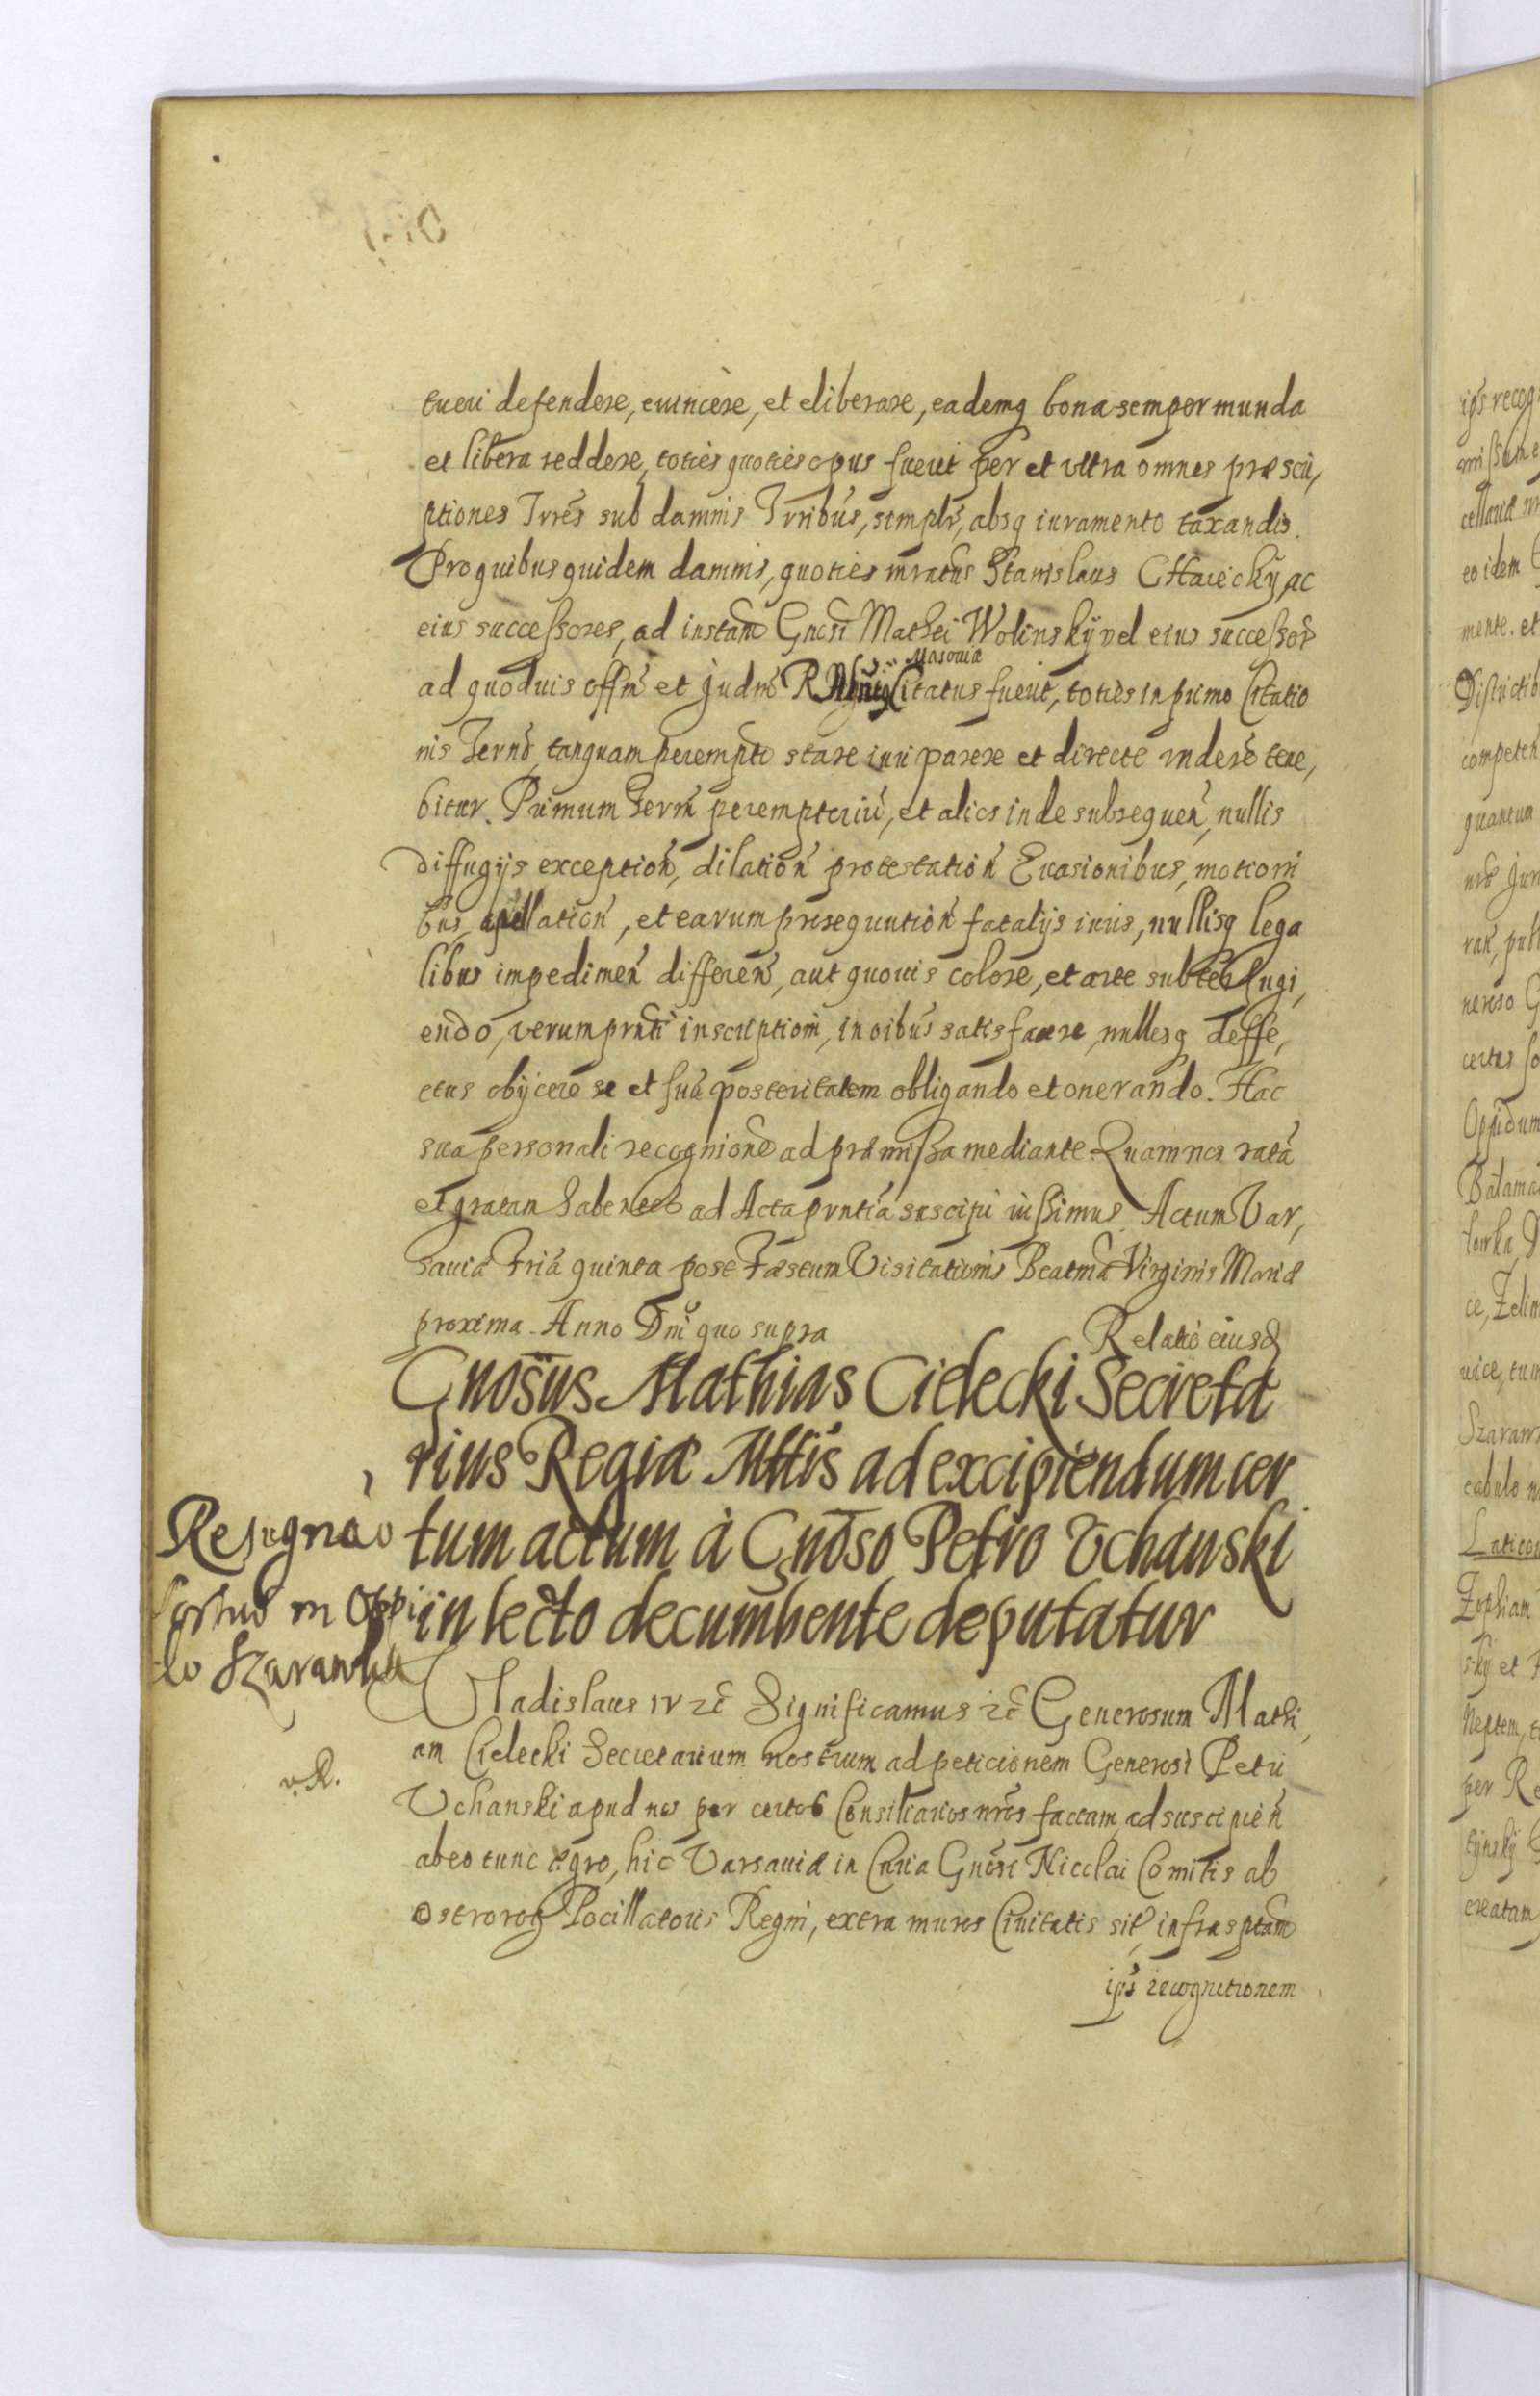 tueri defendere, euincere, et eliberare, eademq bona semper munda
et libera reddere, toties quoties opus fuerit per et vltra omnes præscri,
ptiones Trrēs sub damnis Trribus, simplr, absq iuramento taxandis.
Pro quibus quidem damnis, quoties mratus Stanislaus CHaiecky, ac
eius successores, ad instam Gnosi Mathei Wolinskÿ vel eius successor
ad quoduis offm et Judm R Masouiæ Citatus fuerit, toties in primo Citatio
nis Termo tanquam perempto stare iuri parere et directe rndere tene,
bitur. Primum Term peremptoriu, et alios inde subsequen, nullis
diffugijs exception, dilation protestation Euasionibus, motioni
bus, apellation, et earum prosequution fatalijs iuris, nullisq lega
libus impedimen differen, aut quouis colore, et arte subterfugi,
endo, verum prnti inscriptioni, in oibus satisfacere, nullosq deffe,
ctus obijcere se et sua posteritatem obligando et onerando. Hac
sua personali recognione ad præmissa mediante. Quam nos rata
et gratam habentes ad Acta prntia suscipi iussimus. Actum Var,
sauiæ Fria quinta post Fæstum Visitationis Beatmæ Virginis Mariæ
proxima. Anno Dni quo supra
Relatio eiusd
Gnosus Mathias Cielecki Secreta
rius Regiæ Mttis ad excipiendum cer
tum actum à Gnoso Petro Vchanski
in lecto decumbente deputatur
Resignao
in Oppi
do Szarawka
v. R.
Vladislaus IV zc Significamus zc Generosum Mathi,
am Cielecki Secretarium nostrum ad peticionem Generosi Petri
Vchanski apud nos per certos Consiliarios nros factam, ad suscipien
ab eo tunc ægro, hic Varsauiæ in Curia Gnosi Nicolai Comitis ab
Ostrorog Pocillatoris Regni, extra muros Ciuitatis sit, infrasptam
ips recognitionem